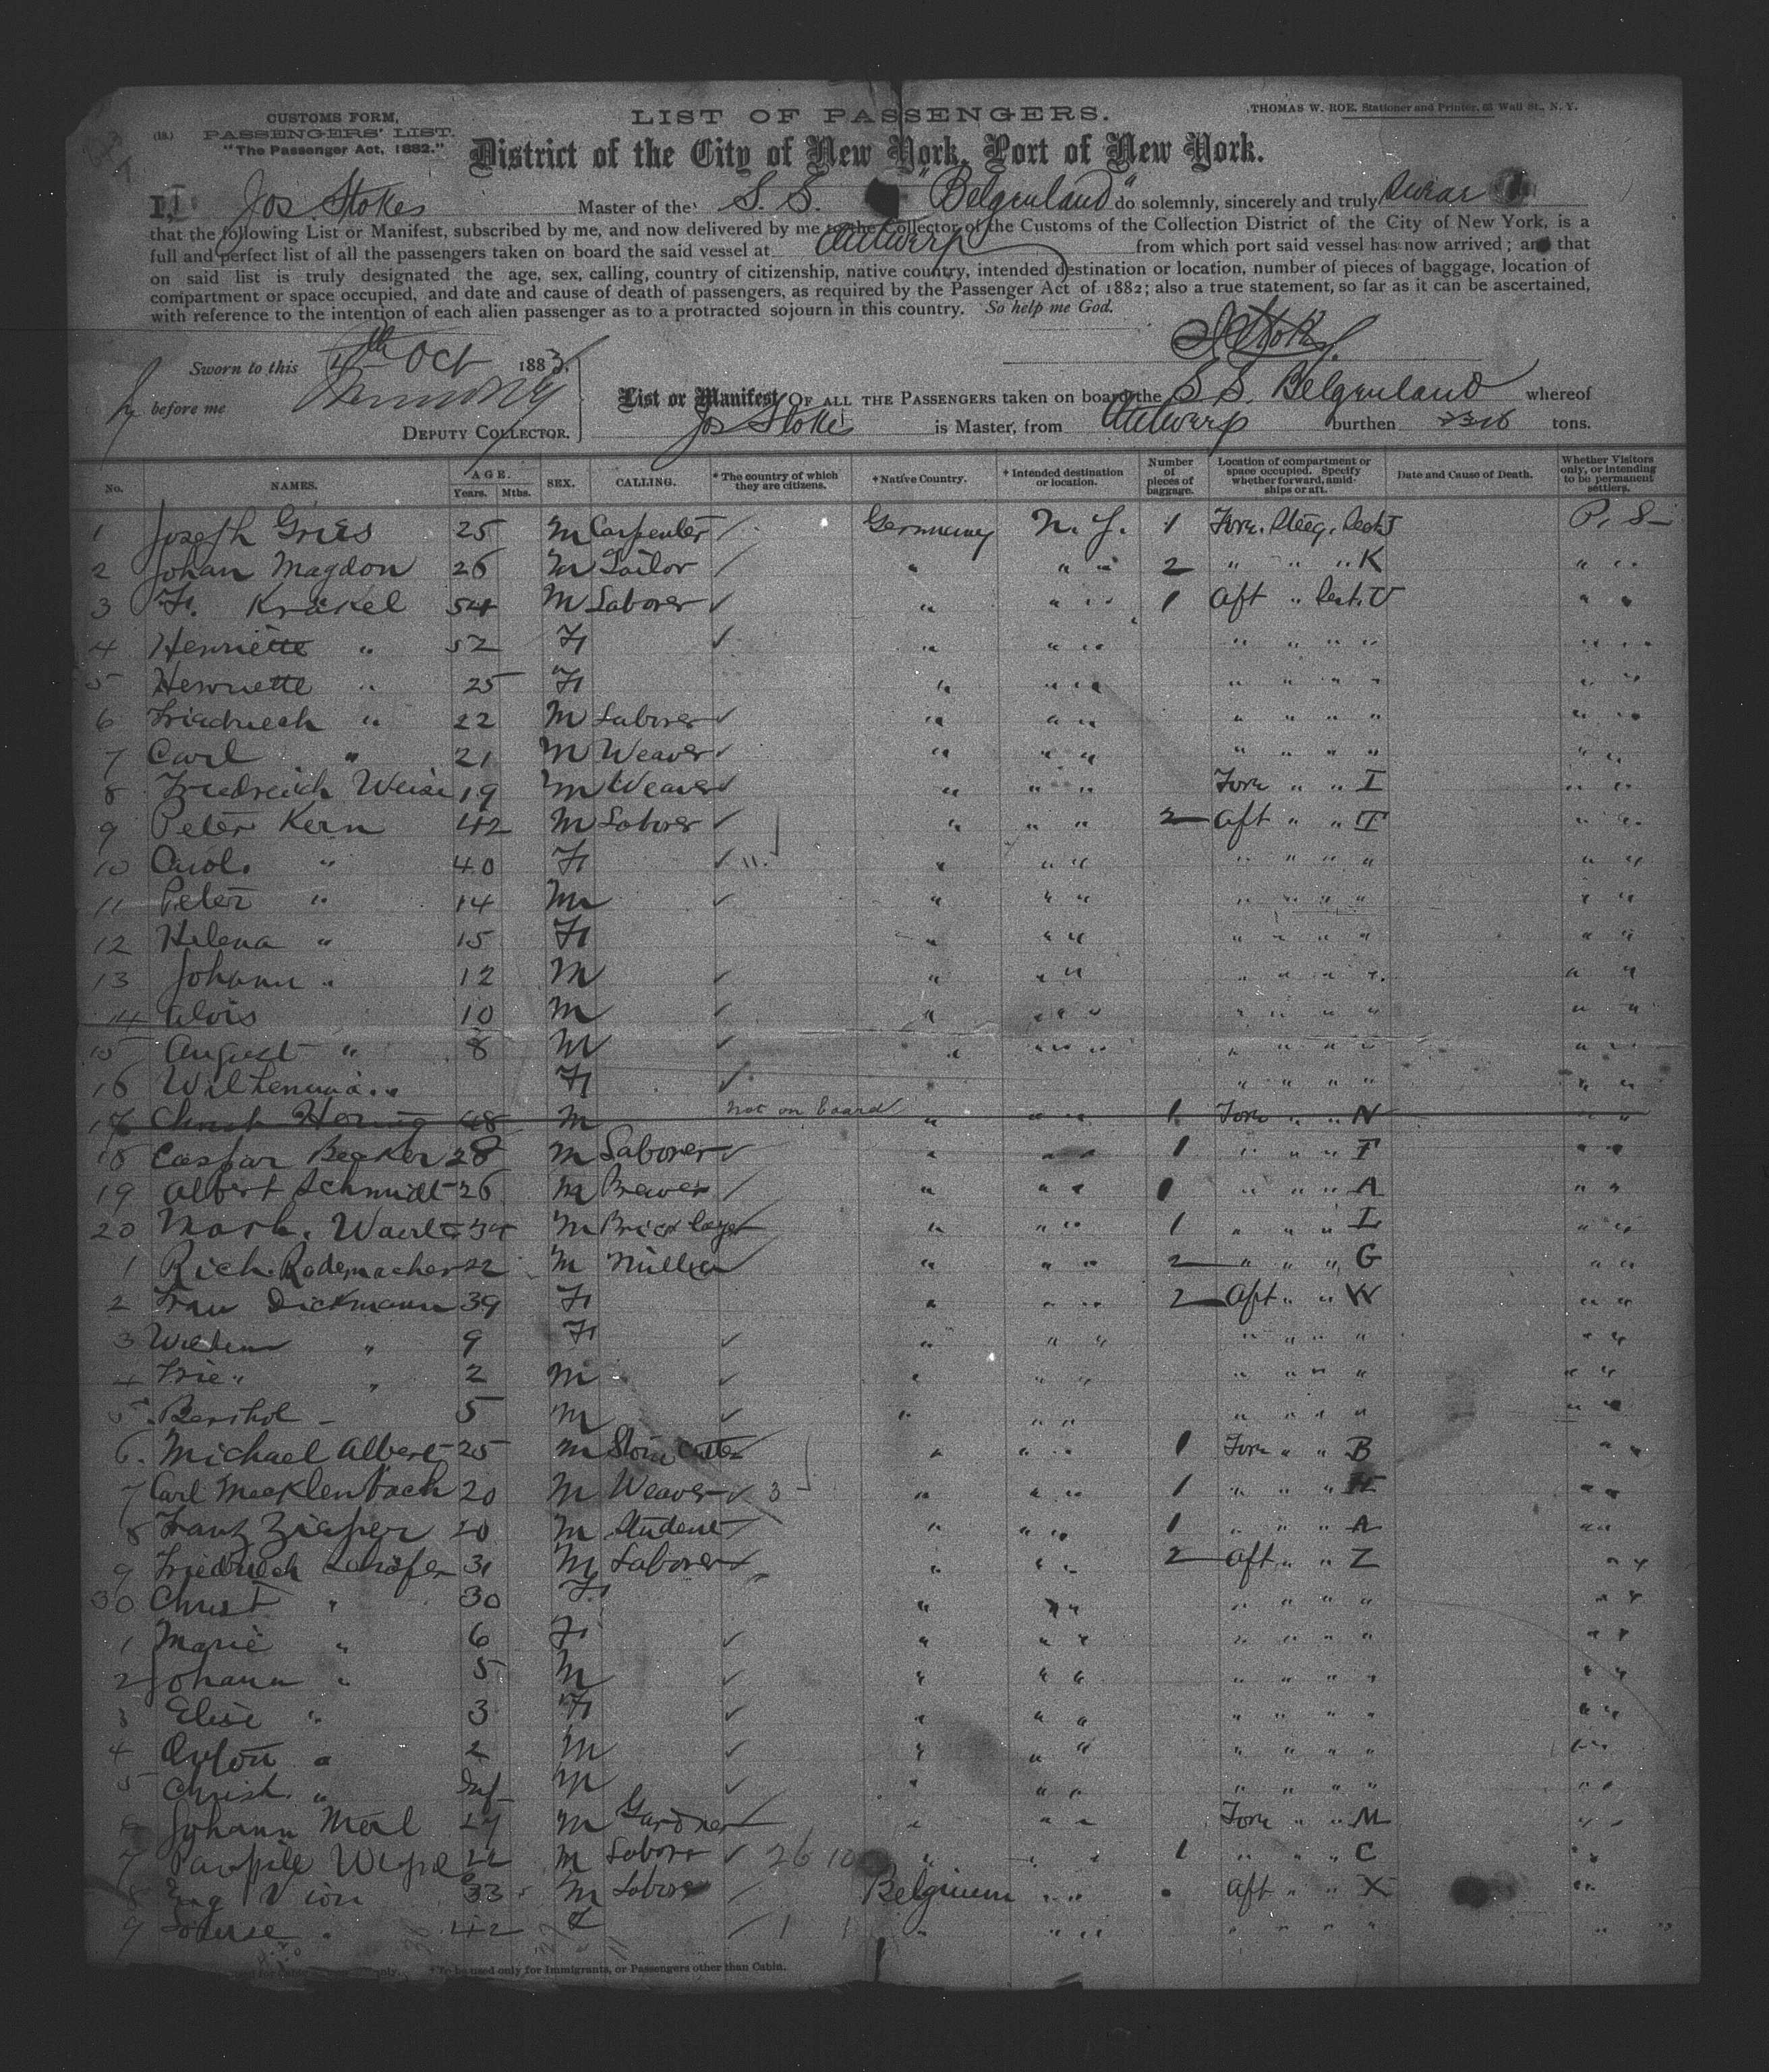 CUSTOMS FORM,
(18.) PASSENGERS' LIST.
"The Passenger Act, 1882."
LIST OF PASSENGERS.
THOMAS W. ROE, Stationer and Printer, 65 Wall St., N. Y.
District of the City of New York, Port of New York.
I, I Jos. Stokes Master of the S. S. "Belgenland" do solemnly, sincerely and truly swear
that the following List or Manifest, subscribed by me, and now delivered by me to the Collector of the Customs of the Collection District of the City of New York, is a
full and perfect list of all the passengers taken on board the said vessel at Antwerp from which port said vessel has now arrived; and that
on said list is truly designated the age, sex, calling, country of citizenship, native country, intended destination or location, number of pieces of baggage, location of
compartment or space occupied, and date and cause of death of passengers, as required by the Passenger Act of 1882; also a true statement, so far as it can be ascertained,
with reference to the intention of each alien passenger as to a protracted sojourn in this country. So help me God.
J Stokes.
Sworn to this 4th Oct 1883.
before me
DEPUTY COLLECTOR.
List or Manifest OF ALL THE PASSENGERS taken on board the S S. Belgenland whereof
Jos Stokes is Master, from Antwerp burthen tons.
No. NAMES. AGE. Years. Mths. SEX. CALLING. * The country of which they are citizens. * Native Country. * Intended destination or location. Number of pieces of baggage. Location of compartment or space occupied. Specify whether forward, amidships or aft. Date and Cause of Death. Whether Visitors only, or intending to be permanent settlers.
1 Joseph Gries 25 M Carpenter / Germany N. Y. 1 Forw. Steeg. Sect. J P. S
2 Johan Magdon 26 M Tailor / " " " 2 " " " K " "
3 Fr. Krakel 54 M Laborer ✓ " " " 1 Aft " Sect. U " "
4 Henriette " 52 F ✓ " " " " " " " " "
5 Henriette " 25 F " " " " " " " " "
6 Friedriech " 22 M Laborer ✓ " " " " " " " " "
7 Carl " 21 M Weaver ✓ " " " " " " " " "
8 Friedreich Weise 19 M Weaver ✓ " " " Forw " " I " "
9 Peter Kern 42 M Laborer ✓ " " " 2 Aft " " T " "
10 Carol. " 40 F ✓ 11. " " " " " " " " "
11 Peter " 14 M ✓ " " " " " " " " "
12 Helena " 15 F " " " " " " " " "
13 Johann " 12 M ✓ " " " " " " " " "
14 Alois 10 M ✓ " " " " " " " " "
15 August " 8 M ✓ " " " " " " " " "
16 Wilhemina " F ✓ " " " " " "
17 Christ Hornig 48 M not on board " " " 1 Forw " " N "
18 Caspar Becker 28 M Laborer ✓ " " " 1 " " " F " "
19 Albert Schmidt 26 M Brewer / " " " 1 " " " A " "
20 34 M Bricklayer " " " 1 " " " L " "
1 Rich. Rodemacher 22 M Miller " " " 2 " " " G " "
2 Frau Dickmann 39 F " " " 2 Aft " " W " "
3 " 9 F ✓ " " " " " " " " "
4 " 2 M ✓ " " " " " " " " "
5 Berthol 5 M ✓ " " " " " " " " "
6. Michael Albert 25 M Stone Cutter " " " 1 Forw " " B " "
7 Carl Mecklenbach 20 M Weaver ✓ 3 " " " 1 " " " H " "
8 Frantz 20 M Student " " " 1 " " " A " "
9 Friedriech Schäfer 31 M Laborer " " " 2 Aft " " Z " "
30 Christ " 30 F " " " " " " " " "
1 Marie " 6 F ✓ " " " " " " " " "
2 Johann " 5 M ✓ " " " " " " " " "
3 Elise " 3 F ✓ " " " " " " " " "
4 Anton " 2 M ✓ " " " " " " " " "
5 Christ. " Inf M ✓ " " " " " " " " "
6 Johann M Gardner " " " Forw " " M " "
7 M Labore ✓ 26 10 " " " 1 " " " C " "
8 Eug Vion 33 M Labore / Belgium " " Aft " " X " "
9 Louise " 42 F / 1 1 " " " " " " " " "
* To be used only for Immigrants, or Passengers other than Cabin.